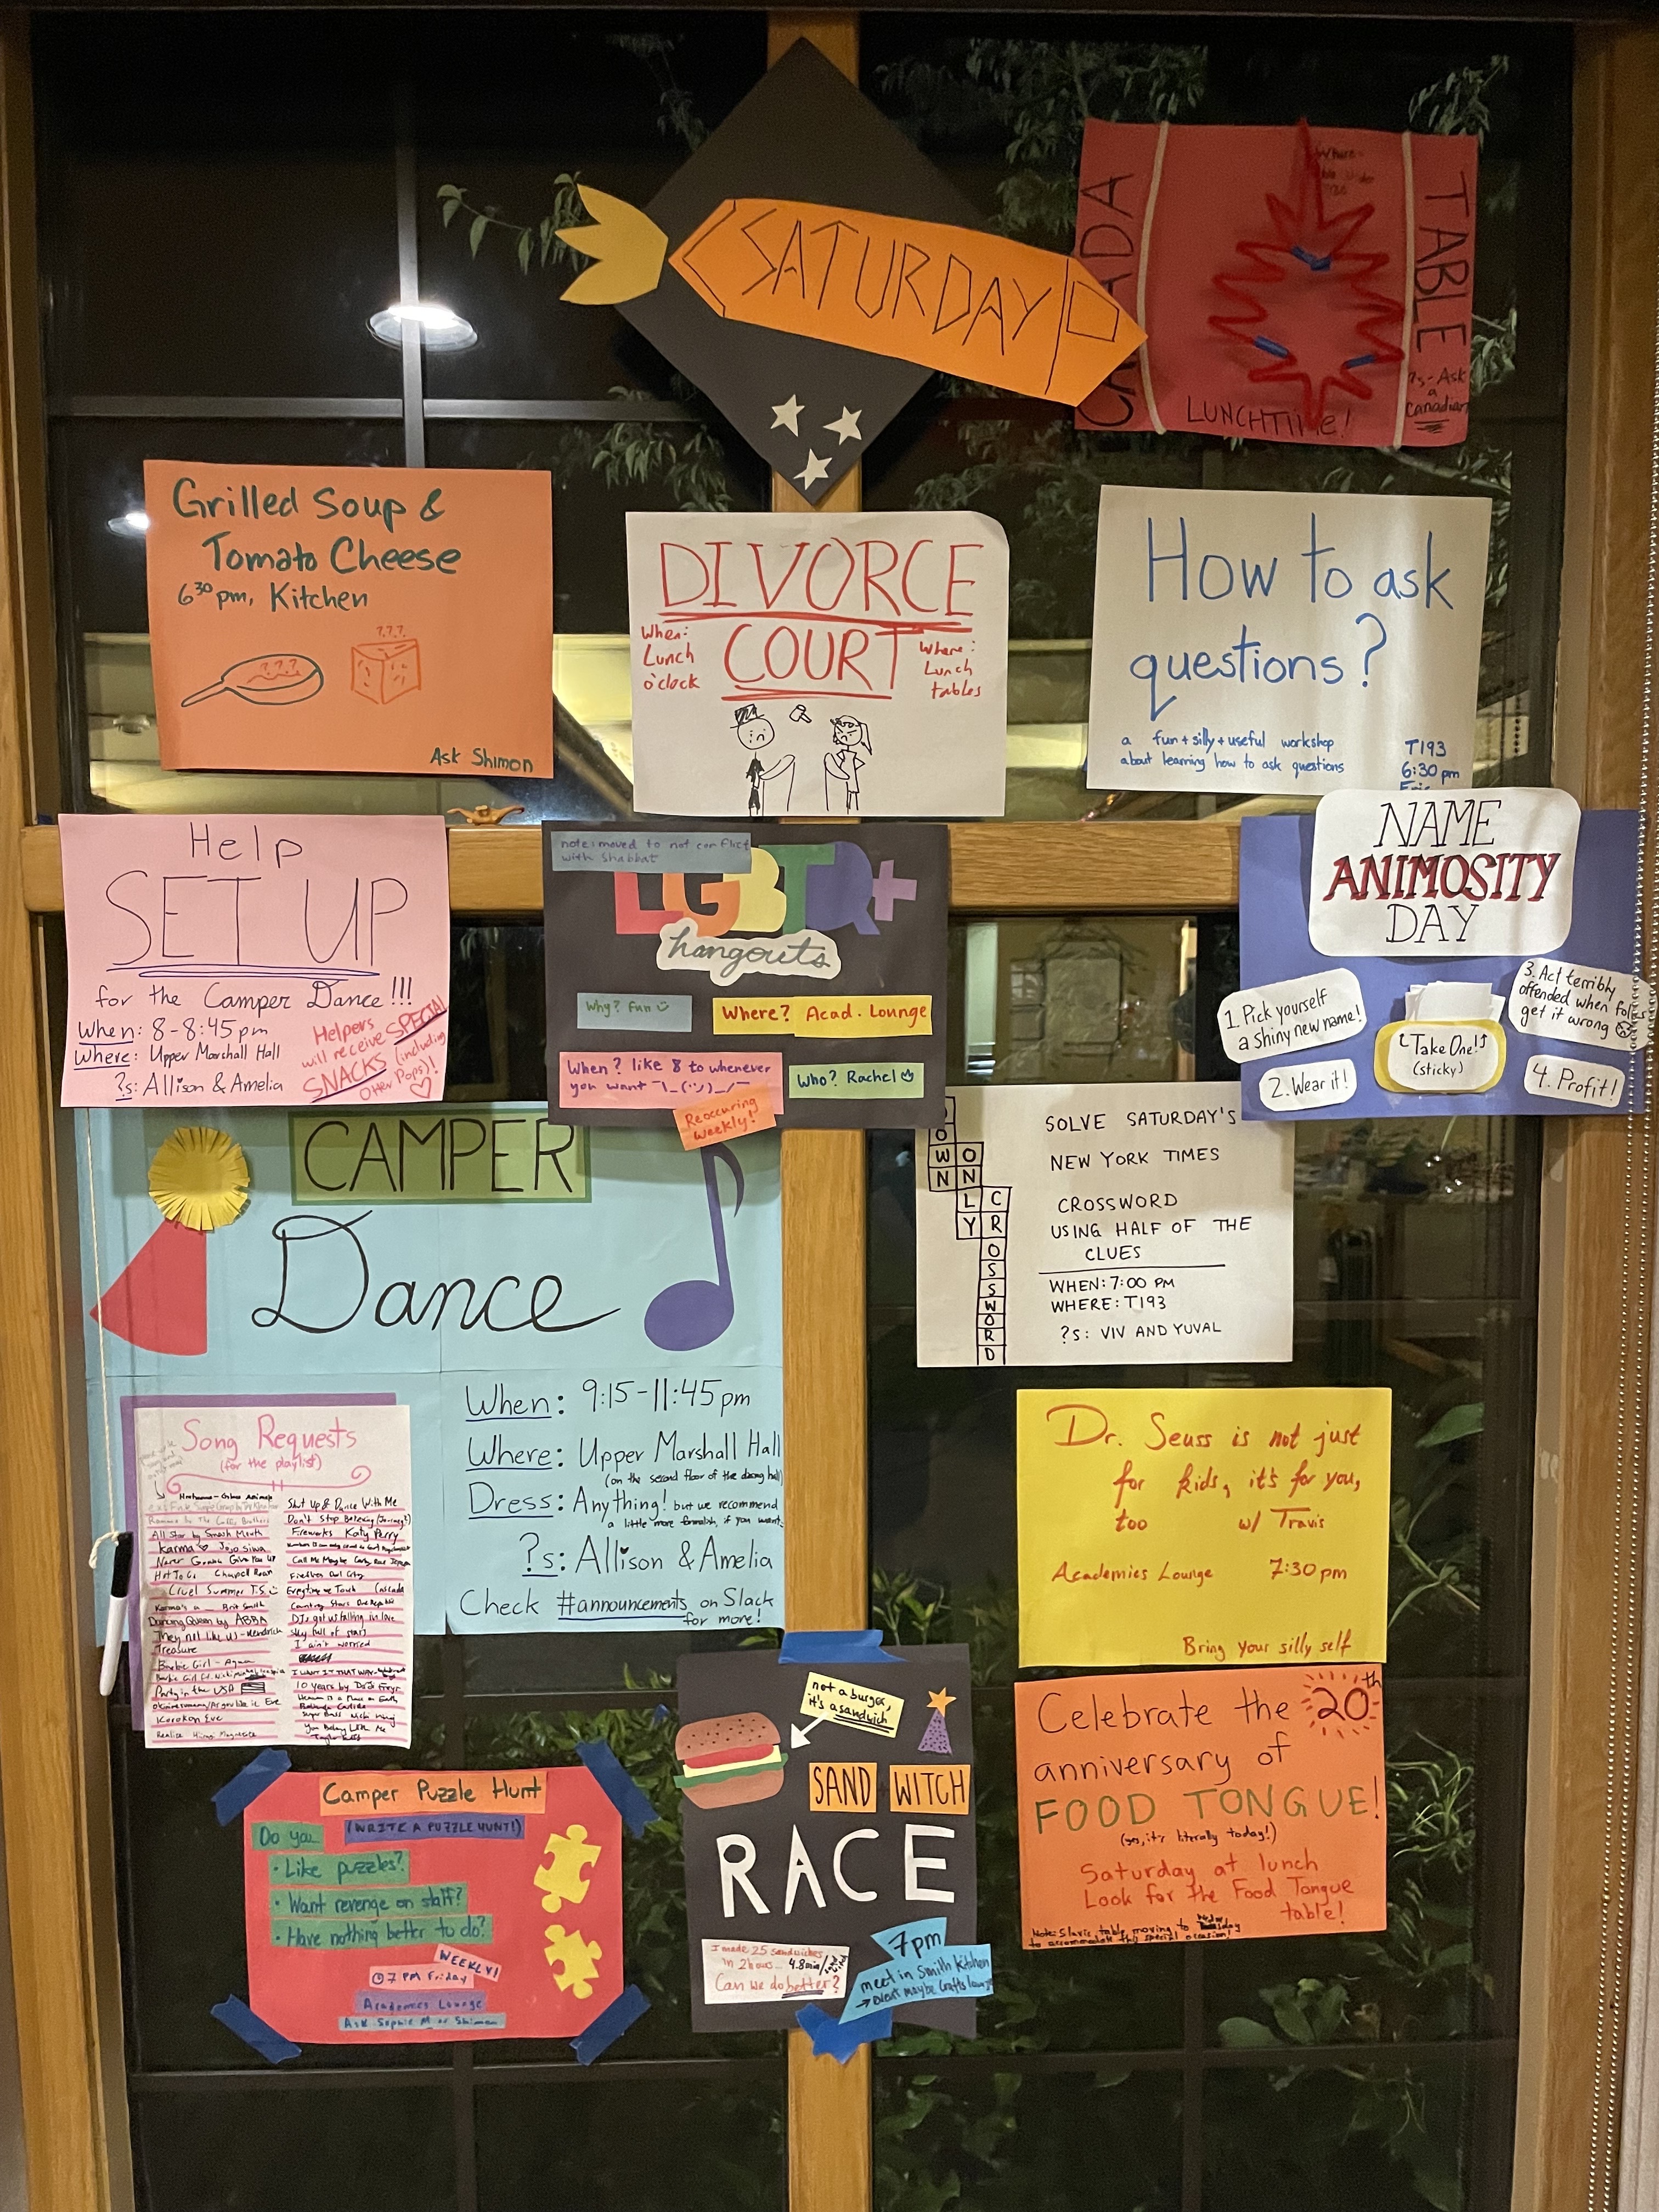 SATURDAY
CANADA
TABLE
Where:
LUNCHTIME!
?s-Ask
a
Canadian
Grilled Soup &
Tomato Cheese
6³⁰ pm, Kitchen
???
???
Ask Shimon
DIVORCE
COURT
When:
Lunch
o'clock
Where:
Lunch
tables
How to ask
questions?
a fun + silly + useful workshop
about learning how to ask questions
T193
6:30 pm
Help
SET UP
for the Camper Dance!!!
When: 8-8:45 pm
Where: Upper Marshall Hall
?s: Allison & Amelia
Helpers
will receive SPECIAL
SNACKS (including
Otter Pops)!
note: moved to not conflict
with Shabbat
LGBTQ+
hangouts
Why? Fun
Where? Acad. Lounge
When? like 8 to whenever
you want ¯\_(ツ)_/¯
Who? Rachel
Reoccuring
weekly!
NAME
ANIMOSITY
DAY
1. Pick yourself
a shiny new name!
2. Wear it!
Take One!
(sticky)
3. Act terribly
offended when folks
get it wrong
4. Profit!
CAMPER
Dance
When: 9:15-11:45 pm
Where: Upper Marshall Hall
(on the second floor of the dining hall)
Dress: Anything! but we recommend
a little more formalish, if you want.
?s: Allison & Amelia
Check #announcements on Slack
for more!
DOWN
ONLY
CROSSWORD
SOLVE SATURDAY'S
NEW YORK TIMES
CROSSWORD
USING HALF OF THE
CLUES
WHEN: 7:00 PM
WHERE: T193
?s: VIV AND YUVAL
Song Requests
(for the playlist)
All Star by Smash Mouth
Karma Jojo Siwa
Never Gonna Give You Up
Hot To Go Chapell Roan
Cruel Summer T.S.
Dancing Queen by ABBA
They not like us - Kendrick
Treasure
Barbie Girl - Aqua
Party in the USA
Korokon Eve
Shut Up & Dance With Me
Don't Stop Believing (Journey!)
Fireworks Katy Perry
Call Me Maybe Carly Rae Jepsen
Fireflies Owl City
Everytime we Touch Cascada
Counting Stars One Republic
DJs got us falling in love
Sky full of stars
I ain't worried
I WANT IT THAT WAY
10 years by Daði Freyr
Heaven is a Place on Earth
Belinda Carlisle
Super Bass Nicki Minaj
You Belong With Me
Taylor Swift
Dr. Seuss is not just
for kids, it's for you,
too w/ Travis
Academics Lounge 7:30 pm
Bring your silly self
Camper Puzzle Hunt
(WRITE A PUZZLE HUNT!)
Do you
• Like puzzles?
• Want revenge on staff?
• Have nothing better to do?
WEEKLY!
@7 PM Friday
Academics Lounge
Ask Sophie M or Shimon
not a burger,
it's a sandwich
SAND WITCH
RACE
I made 25 sandwiches
in 2 hours... 4.8 min/
Can we do better?
7pm
meet in Smith Kitchen
→ event maybe Crafts lounge
Celebrate the 20th
anniversary of
FOOD TONGUE!
(yes, it's literally today!)
Saturday at lunch
Look for the Food Tongue
table!
Note: Slavic table moving to
to accommodate this special occasion!